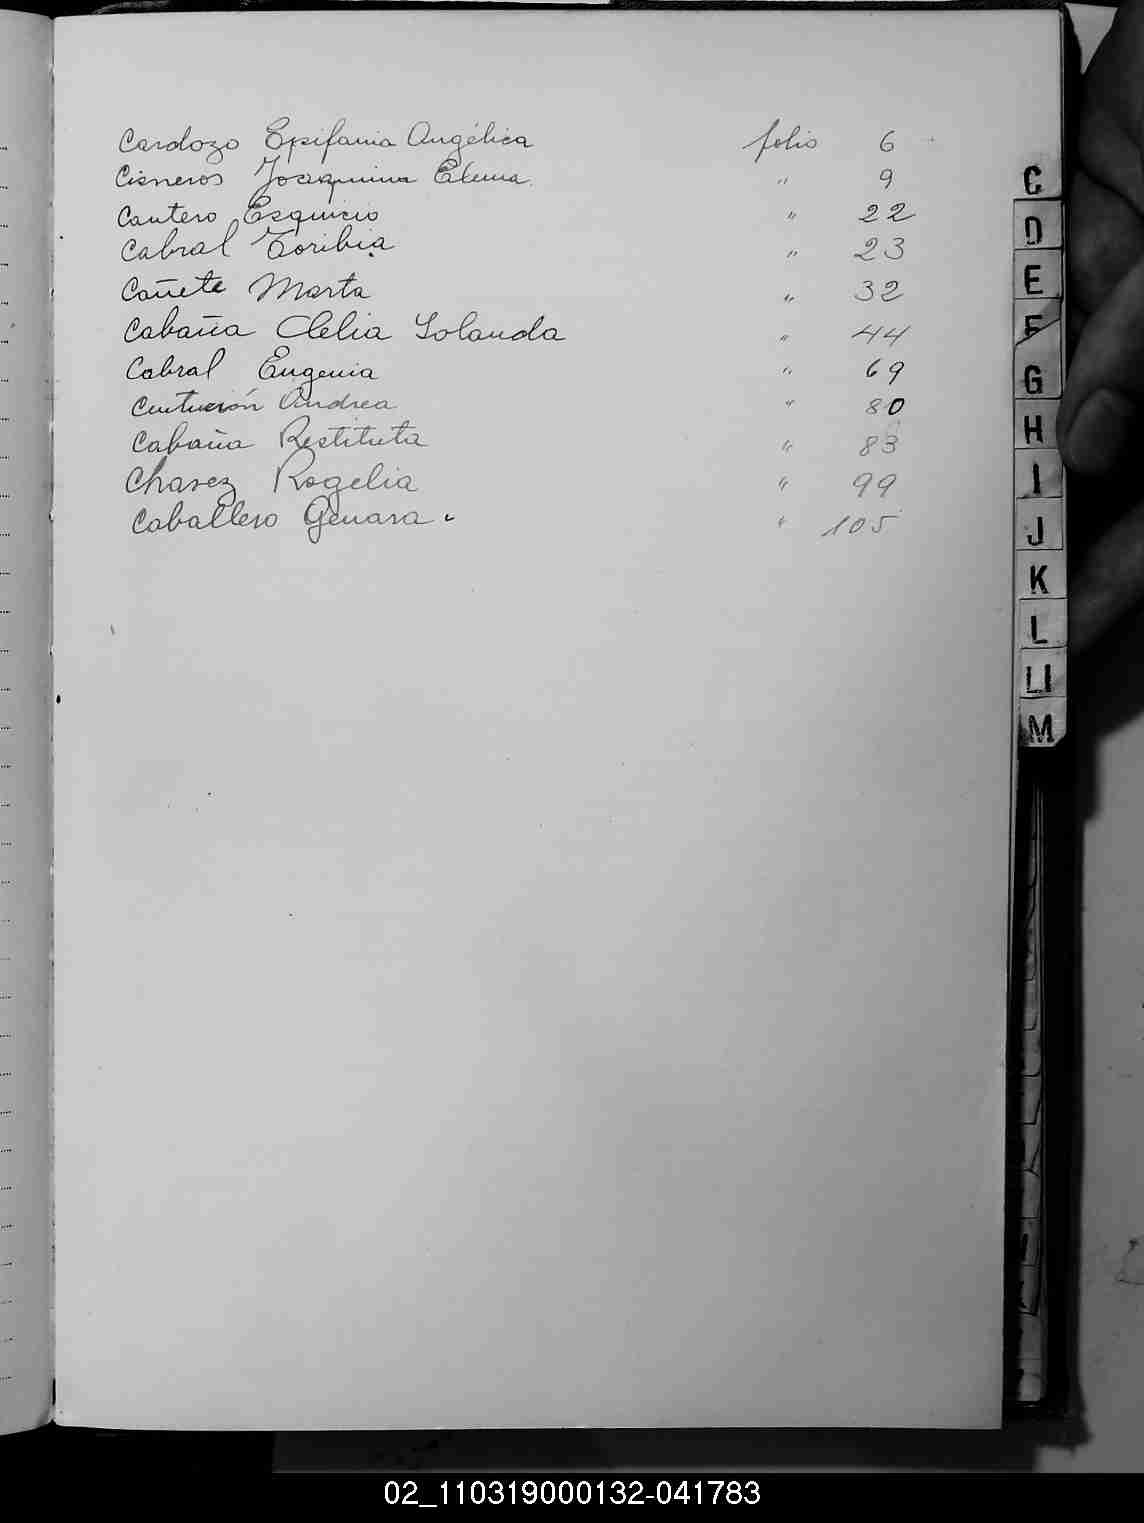 Cardozo Epifania Angélica folio 6
Cisneros Joaquina Elena. " 9
Cantero Esquicio " 22
Cabral Toribia " 23
Cañete Marta " 32
Cabaña Clelia Yolanda " 44
Cabral Eugenia " 69
Centurión Andrea " 80
Cabaña Restituta " 83
Chavez Rogelia " 99
Caballero Genara. " 105
C
D
E
F
G
H
I
J
K
L
Ll
M
02_110319000132-041783